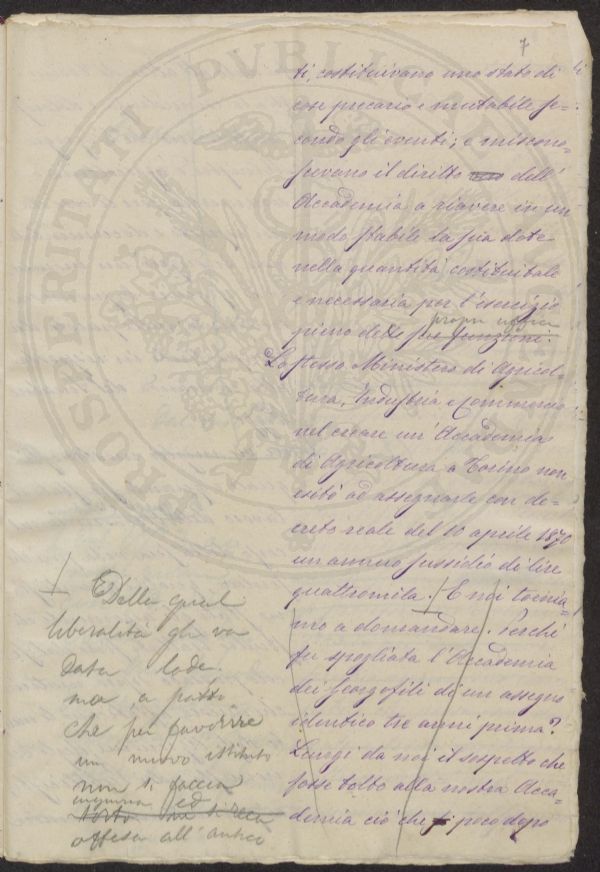 7
ti, costituivano uno stato di
cose precario e mutabile se-
condo gli eventi; e miscono-
scevano il diritto dell'
Accademia a riavere in un
modo stabile la sua dote
nella quantità costituitale
e necessaria per l'esercizio
proprii uffici
pieno delle sue funzioni.
Lo stesso Ministero di Agricol-
tura, Industria e Commercio
nel creare un'Accademia
di Agricoltura a Torino non
esitò ad assegnarle con de-
creto reale del 10 aprile 1870
un annuo sussidio di lire
quattromila. E noi tornia-
mo a domandare. Perché
fu spogliata l'Accademia
dei Georgofili di un assegno
identico tre anni prima?
Lungi da noi il sospetto che
fosse tolto alla nostra Acca-
demia ciò che si poco dopo
Della qual
liberalità gli va
data lode.
ma, a patto
che per favorire
un nuovo istituto
non si faccia
ingiuria ed
torto si reca
offesa all'antico
PROSPERITATI PVBLICAE